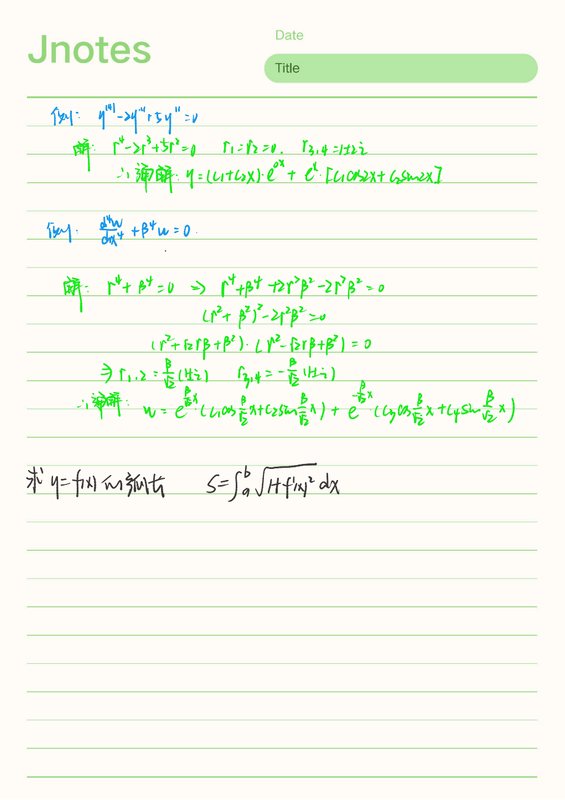 Jnotes
Date
Title
例: y⁽⁴⁾-2y'''+5y''=0
解: r⁴-2r³+5r²=0 r₁=r₂=0. r₃,₄=1±2i
∴通解: y=(c₁+c₂x)·e⁰ˣ+eˣ·[c₁cos2x+c₂sin2x]
例. d⁴w/dx⁴+β⁴w=0.
解: r⁴+β⁴=0 => r⁴+β⁴+2r²β²-2r²β²=0
(r²+β²)²-2r²β²=0
(r²+√2rβ+β²)·(r²-√2rβ+β²)=0
⇒r₁,₂=β/√2(1±i) r₃,₄=-β/√2(1±i)
∴通解: w=e^(β/√2 x)(c₁cosβ/√2x+c₂sinβ/√2x)+e^(-β/√2 x)(c₃cosβ/√2x+c₄sinβ/√2x)
求y=f(x)的弧长 S=∫ₐᵇ√(1+f'(x)²)dx